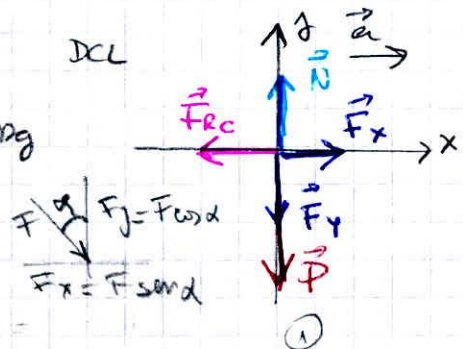 DCL
y
a
N
F_RC
F_x
x
F
α
F_y = F cos α
F_y
F_x = F sen α
P
1